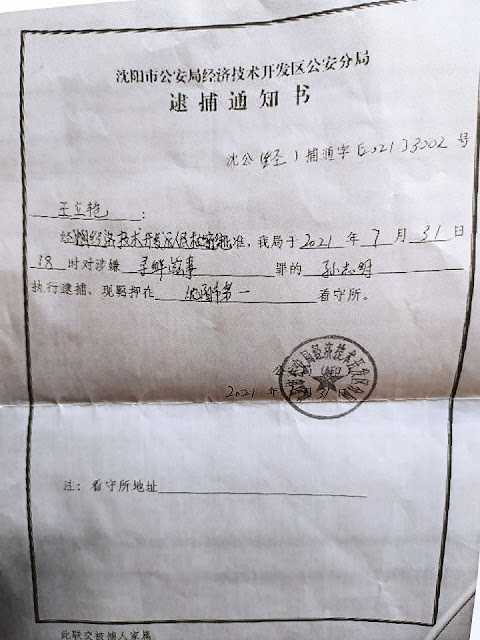 沈阳市公安局经济技术开发区公安分局
逮捕通知书
沈公(经)捕通字[2021]3002号
王立艳:
经沈阳经济技术开发区人民检察院批准，我局于2021年7月31日
18时对涉嫌寻衅滋事罪的孙志明
执行逮捕，现羁押在沈阳市第一看守所。
公安局经济技术开发区
2021年 31日
注：看守所地址
此联交被捕人家属